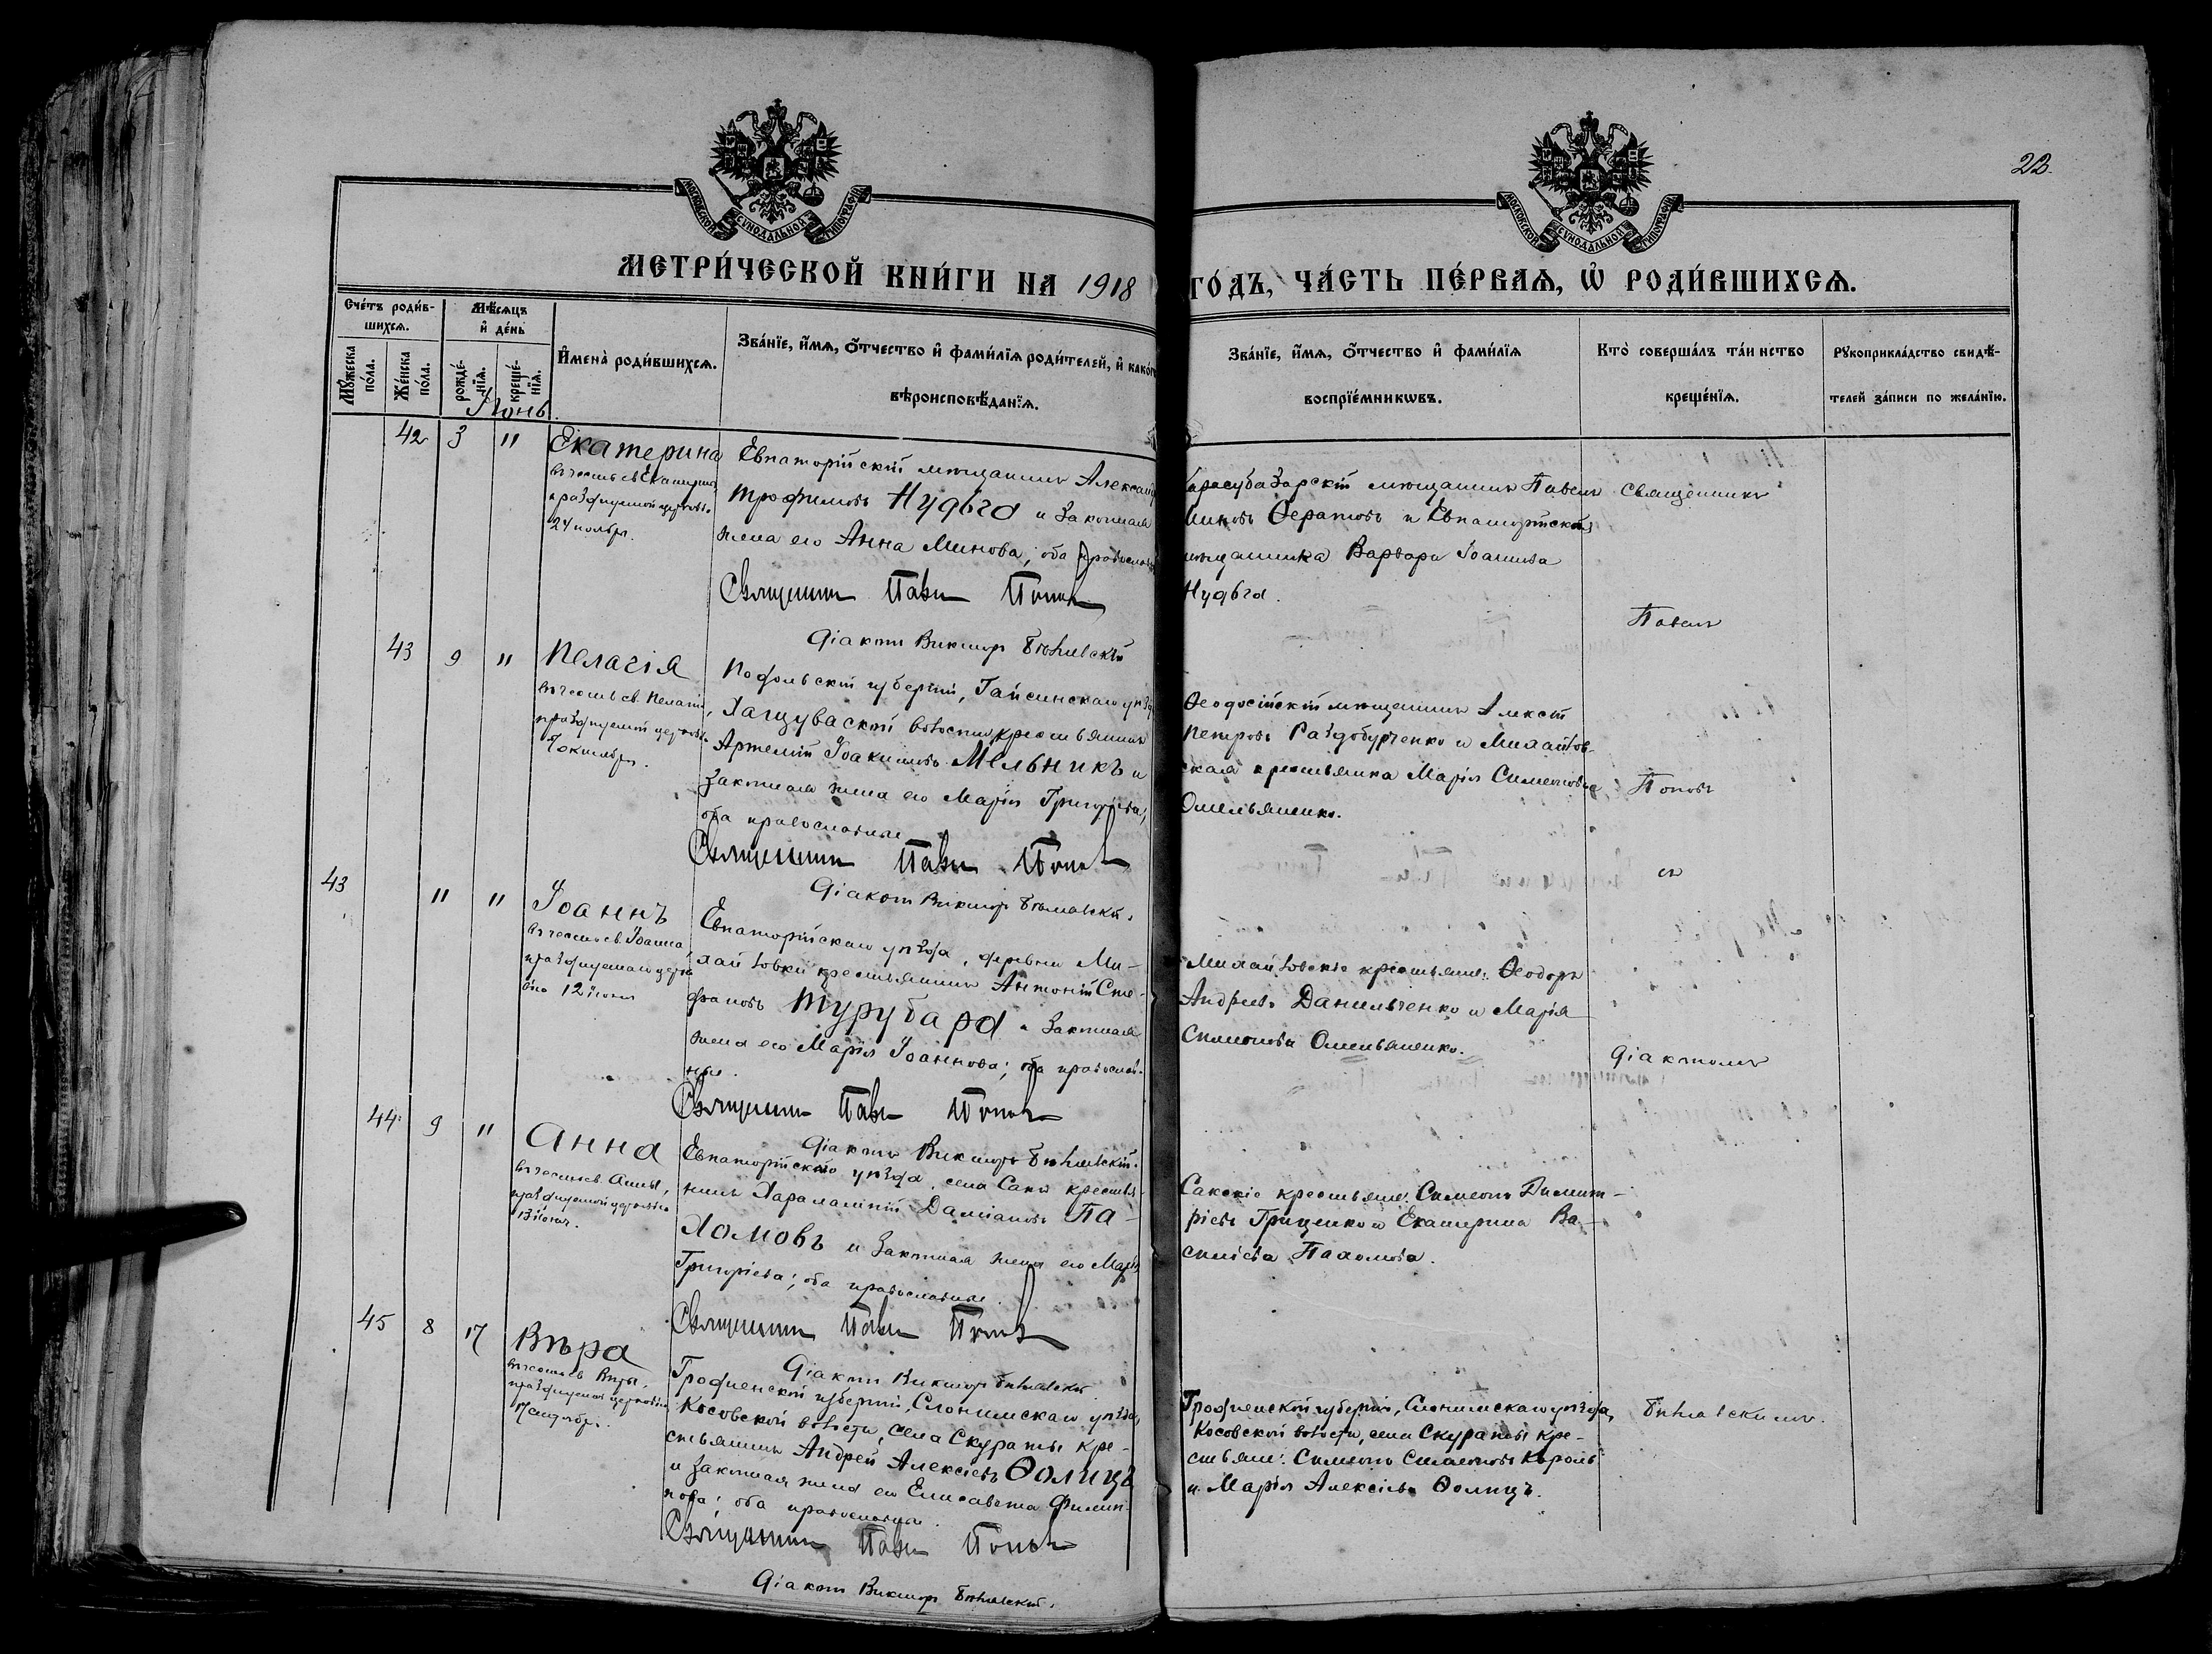 22.
МОСКОВСКОЙ СУНОДАЛЬНОЙ ТИПОГРАФІИ
МОСКОВСКОЙ СУНОДАЛЬНОЙ ТИПОГРАФІИ
МЕТРИ́ЧЕСКОЙ КНИ́ГИ НА 1918 ГО́ДЪ, ЧА́СТЬ ПЕ́РВАѦ, Ѡ҆ РОДИ́ВШИХСѦ.
Счетъ роди́в-
шихсѧ.
Мѣсѧцъ
и҆ де́нь
Мꙋ́жеска
по́ла.
Же́нска
по́ла.
рожде́-
нїѧ.
креще́-
нїѧ.
И҆мена̀ роди́вшихсѧ.
Зва́нїе, и҆́мѧ, ѻ҆́тчество и҆ фами́лїѧ роди́телей, и҆ како́гѡ
вѣроисповѣ́данїѧ.
Зва́нїе, и҆́мѧ, ѻ҆́тчество и҆ фами́лїѧ
воспрїе́мникѡвъ.
Кто̀ соверша́лъ та́инство
креще́нїѧ.
Рꙋкоприкла́дство свидѣ́-
телей за́писи по жела́нїю.
Іюнь.
42 3 "
Екатерина
въ честь св. Екатерины
празднуемой церковью
24 ноября.
Евпаторійскій мѣщанинъ Александръ
Трофимовъ Нудьга и законная
жена его Анна Минова; оба православные
Священникъ Павелъ Поповъ
Діаконъ Викторъ Бѣлявскій
Карасубазарскій мѣщанинъ Павелъ
Миновъ Ѳератовъ и Евпаторійская
мѣщанка Варвара Іоаннова
Нудьга.
Священникъ
Павелъ
43 9 "
Пелагія
въ честь св. Пелагіи,
празднуемой церковью
7 октября.
Подольской губерніи, Гайсинскаго уѣзда
Хащуваской волости крестьянинъ
Артемій Іоакимовъ Мельникъ и
законная жена его Марія Григорьева;
оба православные
Священникъ Павелъ Поповъ
Діаконъ Викторъ Бѣлявскій.
Ѳеодосійскій мѣщанинъ Алексѣй
Петровъ Раздобурченко и Михайлов-
ская крестьянка Марія Симеонова
Омельяненко.
Поповъ
съ
43 " "
Іоаннъ
въ честь св. Іоанна,
празднуемаго церко-
вью 12 іюня
Евпаторійскаго уѣзда, деревни Ми-
хайловки крестьянинъ Антоній Сте-
фановъ Турубара и законная
жена его Марія Іоаннова; оба православ-
ные.
Священникъ Павелъ Поповъ
Діаконъ Викторъ Бѣлявскій.
Михайловскіе крестьяне: Ѳеодоръ
Андреевъ Данильченко и Марія
Симеонова Омельяненко.
Діакономъ
44 9 "
Анна
въ честь св. Анны,
празднуемой церковью
13 іюня.
Евпаторійскаго уѣзда, села Саки крестья-
нинъ Харалампій Даміановъ Па-
хомовъ и законная жена его Марія
Григорьева; оба православные.
Священникъ Павелъ Поповъ
Діаконъ Викторъ Бѣлявскій.
Сакскіе крестьяне: Симеонъ Димит-
ріевъ Гриценко и Екатерина Ва-
силіева Пахомова.
45 8 17
Вѣра
въ честь св. Вѣры,
празднуемой церковью
17 сентября.
Гродненской губерніи, Слонимскаго уѣзда,
Косовской волости, села Скураты кре-
стьянинъ Андрей Алексіевъ Ѳолицъ
и законная жена его Елисавета Филип-
пова; оба православные.
Священникъ Павелъ Поповъ
Діаконъ Викторъ Бѣлявскій.
Гродненской губерніи, Слонимскаго уѣзда,
Косовской волости, села Скураты кре-
стьяне: Симеонъ Симеоновъ Король
и Марія Алексіева Ѳолицъ.
Бѣлявскимъ.